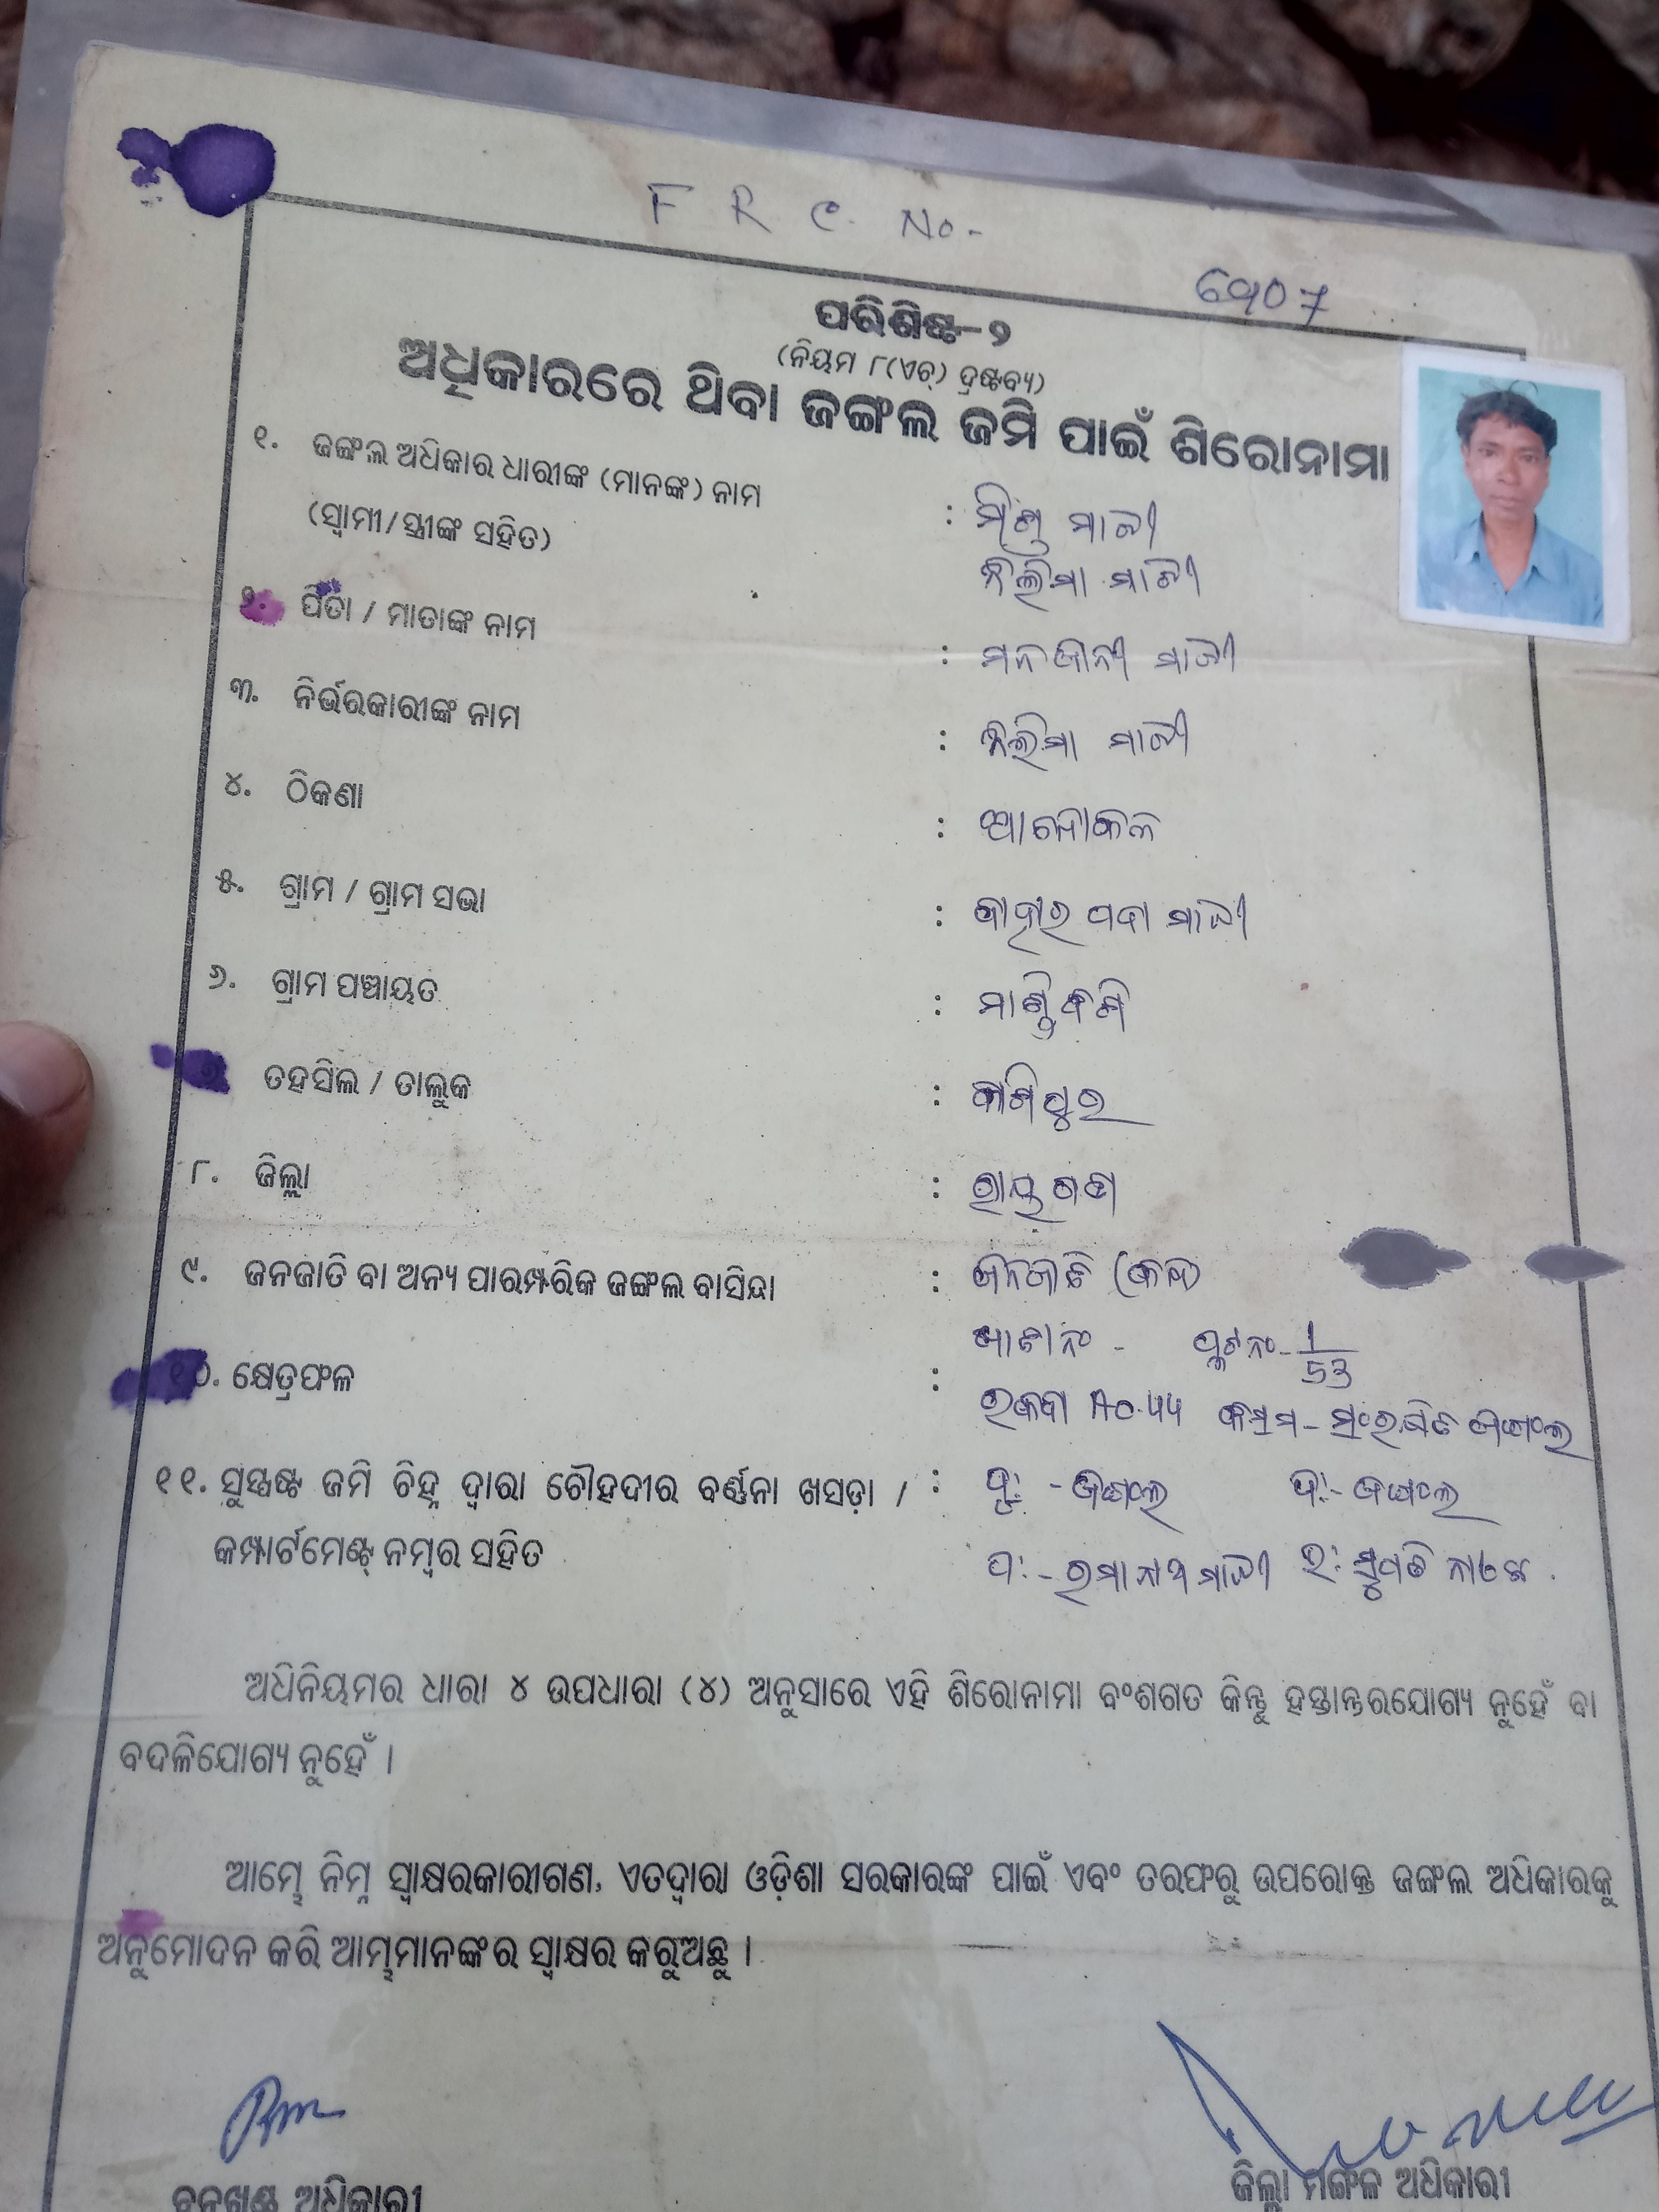 F R C. No-
ପରିଶିଷ୍ଟ-୨
(ନିୟମ ୮(ଏଚ୍) ଦ୍ରଷ୍ଟବ୍ୟ)
ଅଧିକାରରେ ଥିବା ଜଙ୍ଗଲ ଜମି ପାଇଁ ଶିରୋନାମା
୧. ଜଙ୍ଗଲ ଅଧିକାର ଧାରୀଙ୍କ (ମାନଙ୍କ) ନାମ :
(ସ୍ୱାମୀ/ସ୍ତ୍ରୀଙ୍କ ସହିତ) ମାଝୀ
ମାଝୀ
୨. ପିତା / ମାତାଙ୍କ ନାମ : ମାଝୀ
୩. ନିର୍ଭରକାରୀଙ୍କ ନାମ : ମାଝୀ
୪. ଠିକଣା :
୫. ଗ୍ରାମ / ଗ୍ରାମ ସଭା :
୬. ଗ୍ରାମ ପଞ୍ଚାୟତ :
ତହସିଲ / ତାଲୁକ : କାଶିପୁର
୮. ଜିଲ୍ଲା : ରାୟଗଡା
୯. ଜନଜାତି ବା ଅନ୍ୟ ପାରମ୍ପରିକ ଜଙ୍ଗଲ ବାସିନ୍ଦା : ଜନଜାତି
ଖାତା ନଂ - ପ୍ଲଟ ନଂ- 1/53
୧୦. କ୍ଷେତ୍ରଫଳ :
ରକବା କିସମ- ସଂରକ୍ଷିତ ଜଙ୍ଗଲ
୧୧. ସୁସ୍ପଷ୍ଟ ଜମି ଚିହ୍ନ ଦ୍ୱାରା ଚୌହଦୀର ବର୍ଣ୍ଣନା ଖସଡ଼ା / : ପୂ: - ଜଙ୍ଗଲ ଦ:- ଜଙ୍ଗଲ
କମ୍ପାର୍ଟମେଣ୍ଟ୍ ନମ୍ବର ସହିତ ପ: - ରମାନାଥ ମାଝୀ
ଅଧିନିୟମର ଧାରା ୪ ଉପଧାରା (୪) ଅନୁସାରେ ଏହି ଶିରୋନାମା ବଂଶଗତ କିନ୍ତୁ ହସ୍ତାନ୍ତରଯୋଗ୍ୟ ନୁହେଁ ବା
ବଦଳିଯୋଗ୍ୟ ନୁହେଁ ।
ଆମ୍ଭେ ନିମ୍ନ ସ୍ୱାକ୍ଷରକାରୀଗଣ, ଏତଦ୍ଦ୍ୱାରା ଓଡ଼ିଶା ସରକାରଙ୍କ ପାଇଁ ଏବଂ ତରଫରୁ ଉପରୋକ୍ତ ଜଙ୍ଗଲ ଅଧିକାରକୁ
ଅନୁମୋଦନ କରି ଆମ୍ଭମାନଙ୍କର ସ୍ୱାକ୍ଷର କରୁଅଛୁ ।
ବନଖଣ୍ଡ ଅଧିକାରୀ ଜିଲ୍ଲା ମଙ୍ଗଳ ଅଧିକାରୀ